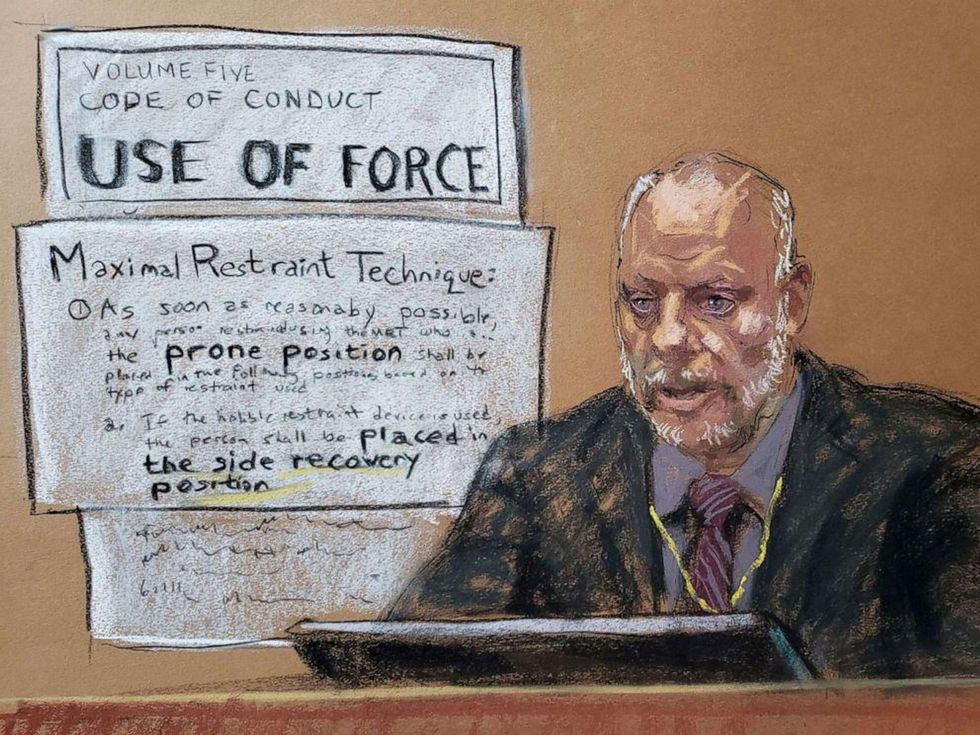 VOLUME FIVE
CODE OF CONDUCT
USE OF FORCE
Maximal Restraint Technique:
① As soon as reasonaby possible,
any person using the MRT who
the prone position shall be
placed in the following positions based on
type of restraint used
If the hobble restraint device is used,
the person shall be placed in
the side recovery
position